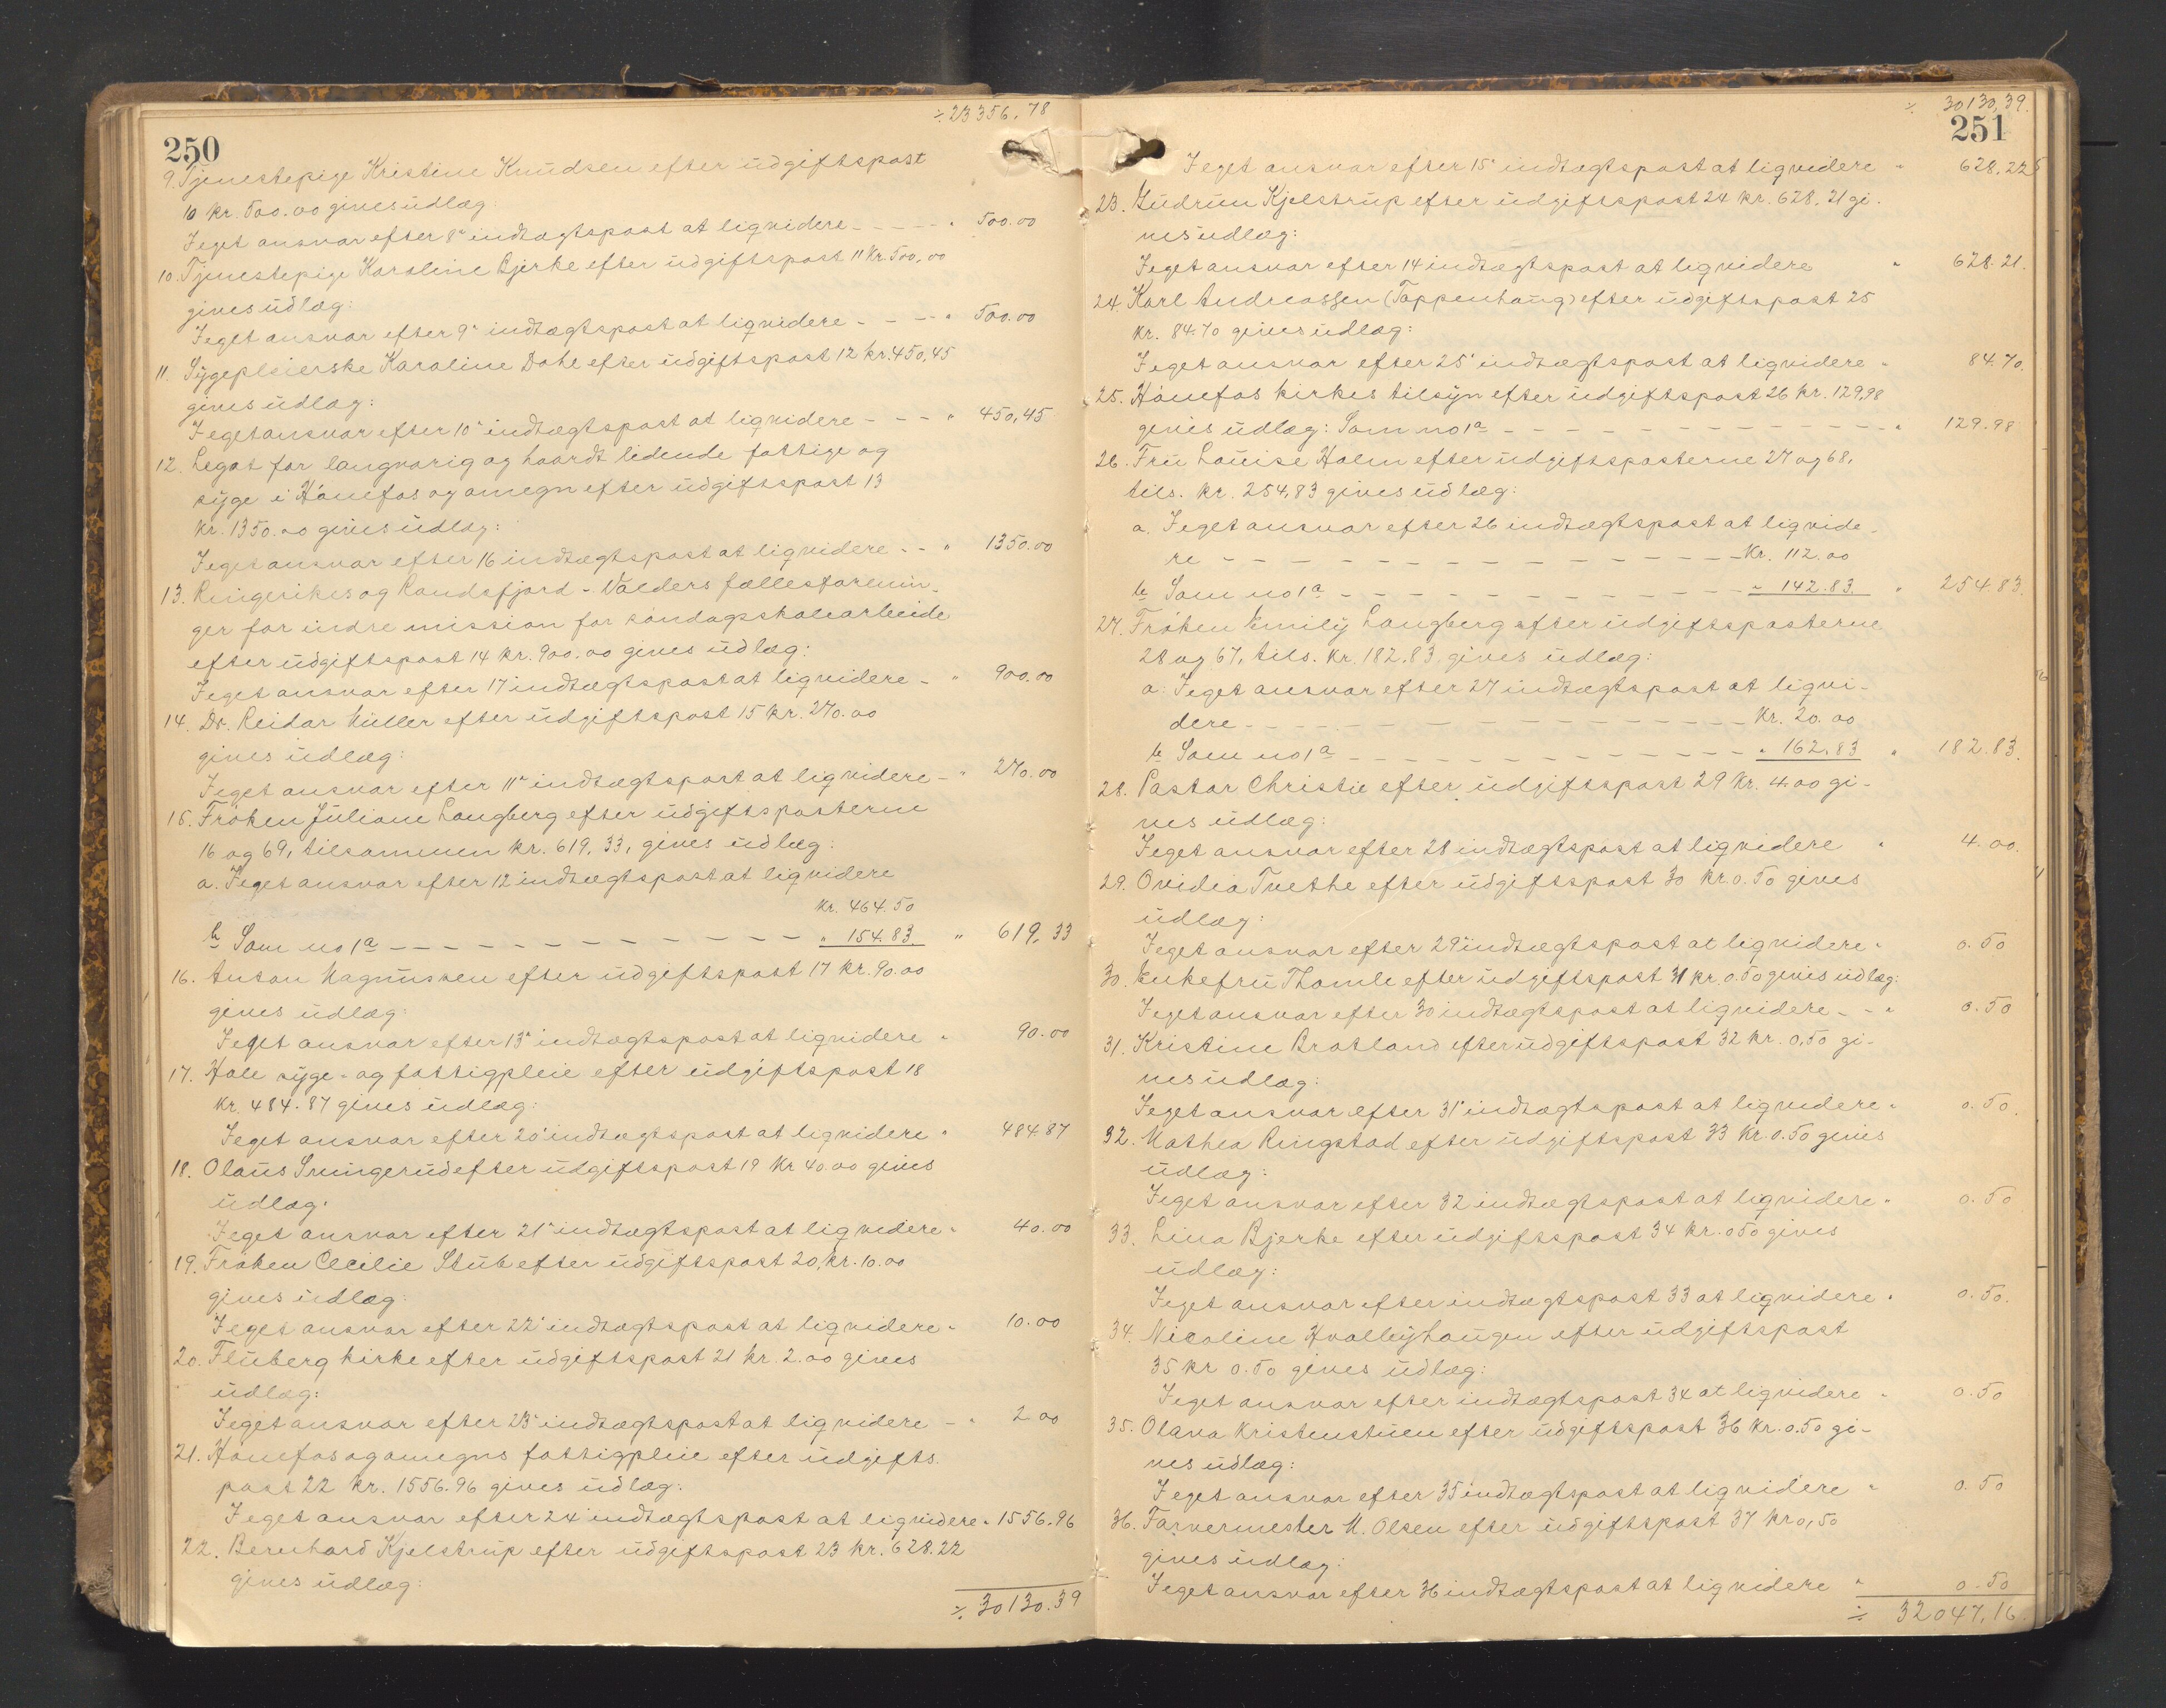 ÷ 23356,78
250
9. Tjenestepige Kristine Knudsen efter udgiftspost
10 kr. 500.00 gives udlæg:
I eget ansvar efter 8' indtægtspost at liqvidere - - - - " 500.00
10. Tjenestepige Karoline Bjerke efter udgiftspost 11 kr. 500,00
gives udlæg:
I eget ansvar efter 9' indtægtspost at liqvidere - - - - " 500.00
11. Sygepleierske Karoline Dahl efter udgiftspost 12 kr. 450,45
gives udlæg:
I eget ansvar efter 10' indtægtspost at liqvidere - - - " 450,45
12. Legat for langvarig og haardt lidende fattige og
syge i Hønefos og omegn efter udgiftspost 13
kr. 1350.00 gives udlæg:
I eget ansvar efter 16 indtægtspost at liqvidere - - " 1350.00
13. Ringerikes og Randsfjord - Valders fællesforenin-
ger for indre mission for søndagsskolearbeide
efter udgiftspost 14 kr. 900.00 gives udlæg:
I eget ansvar efter 17 indtægtspost at liqvidere - " 900.00
14. Dr. Reidar Müller efter udgiftspost 15 kr. 270.00
gives udlæg:
I eget ansvar efter 11' indtægtspost at liqvidere - " 270.00
15. Frøken Juliane Langberg efter udgiftsposterne
16 og 69, tilsammen kr. 619,33, gives udlæg:
a. I eget ansvar efter 12 indtægtspost at liqvidere
kr. 464.50
b Som no 1a - - - - - - - - - - - " 154.83. " 619,33
16. Anton Magnussen efter udgiftspost 17 kr. 90.00
gives udlæg:
I eget ansvar efter 13' indtægtspost at liqvidere " 90.00
17. Hole syge- og fattigpleie efter udgiftspost 18
kr. 484.87 gives udlæg:
I eget ansvar efter 20' indtægtspost at liqvidere " 484.87
18. Olaus Svingerud efter udgiftspost 19 kr 40.00 gives
udlæg.
I eget ansvar efter 21' indtægtspost at liqvidere " 40.00
19. Frøken Cecilie Stub efter udgiftspost 20, kr. 10.00
gives udlæg:
I eget ansvar efter 22' indtægtspost at liqvidere " 10.00
20. Fluberg kirke efter udgiftspost 21 kr. 2.00 gives
udlæg:
I eget ansvar efter 23' indtægtspost at liqvidere - " 2.00
21. Hønefos og omegns fattigpleie efter udgifts-
post 22 kr. 1556.96 gives udlæg:
I eget ansvar efter 24 indtægtspost at liqvidere " 1556.96
22. Bernhard Kjelstrup efter udgiftspost 23 kr. 628.22
gives udlæg:
÷ 30130.39
÷ 30130,39.
251
I eget ansvar efter 15' indtægtspost at liqvidere " 628.22
23. Gudrun Kjelstrup efter udgiftspost 24 kr. 628,21 gi-
ves udlæg:
I eget ansvar efter 14 indtægtspost at liqvidere " 628.21.
24. Karl Andreassen (Tappenhaug) efter udgiftspost 25
kr. 84.70 gives udlæg:
I eget ansvar efter 25' indtægtspost at liqvidere " 84.70.
25. Hønefos kirkes tilsyn efter udgiftspost 26 kr. 129,98
gives udlæg: Som no 1a - - - - - - - - - - - - - " 129.98
26. Fru Louise Holm efter udgiftsposterne 27 og 68,
tils. kr. 254,83 gives udlæg:
a. I eget ansvar efter 26 indtægtspost at liqvide-
re - - - - - - - - - - - - - - Kr. 112.00
b Som no 1a - - - - - - - - - - - " 142.83. " 254.83.
27. Frøken Emily Langberg efter udgiftsposterne
28 og 67, tils. kr. 182.83 gives udlæg:
a. I eget ansvar efter 27 indtægtspost at liqvi-
dere - - - - - - - - - - - - - - Kr. 20.00
b Som no 1a - - - - - - - - - - - " 162.83 " 182.83.
28. Pastor Christie efter udgiftspost 29 kr. 4.00 gi-
ves udlæg:
I eget ansvar efter 28 indtægtspost at liqvidere " 4.00.
29. Ovidia Tvethe efter udgiftspost 30 kr 0.50 gives
udlæg:
I eget ansvar efter 29' indtægtspost at liqvidere " 0.50
30. Enkefru Thomle efter udgiftspost 31 kr. 0.50 gives udlæg:
I eget ansvar efter 30 indtægtspost at liqvidere - - " 0.50
31. Kristine Bratland efter udgiftspost 32 kr. 0,50 gi-
ves udlæg:
I eget ansvar efter 31' indtægtspost at liqvidere " 0.50.
32. Mathea Ringstad efter udgiftspost 33 kr. 0.50 gives
udlæg:
I eget ansvar efter 32 indtægtspost at liqvidere " 0.50
33. Lina Bjerke efter udgiftspost 34 kr. 0.50 gives
udlæg:
I eget ansvar efter indtægtspost 33 at liqvidere " 0.50.
34. Nicoline Hvalbyhaugen efter udgiftspost
35 kr 0.50 gives udlæg:
I eget ansvar efter indtægtspost 34 at liqvidere " 0.50
35. Olava Kristenstuen efter udgiftspost 36 kr. 0.50 gi-
ves udlæg:
I eget ansvar efter 35 indtægtspost at liqvidere " 0.50
36. Farvermester M. Olsen efter udgiftspost 37 kr 0,50
gives udlæg:
I eget ansvar efter 36 indtægtspost at liqvidere " 0.50
÷ 32047,16.